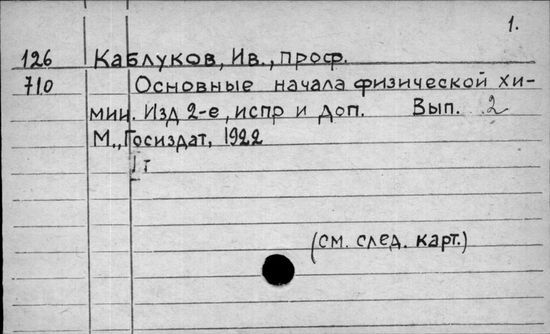 1.
126 Каблуков, Ив., проф.
710 Основные начала физической хи-
мии. Изд 2-е, испр и доп. Вып. 2
М., Госиздат, 1922
1 т
(см. след. карт.)